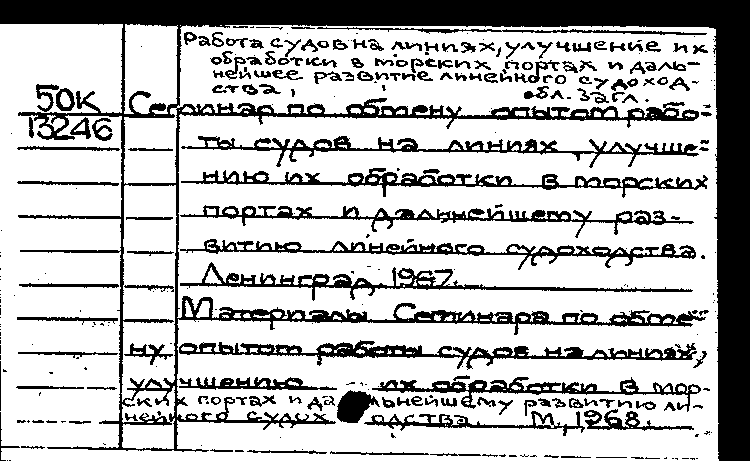 Работа судов на линиях, улучшение их
обработки в морских портах и даль-
нейшее развитие линейного судоход-
ства,
обл. загл.
50К
13246
Семинар по обмену опытом рабо-
ты судов на линиях, улучше-
нию их обработки в морских
портах и дальнейшему раз-
витию линейного судоходства.
Ленинград. 1967.
Материалы Семинара по обме-
ну опытом работы судов на линиях,
улучшению их обработки в мор-
ских портах и дальнейшему развитию ли-
нейного судоходства. М., 1968.